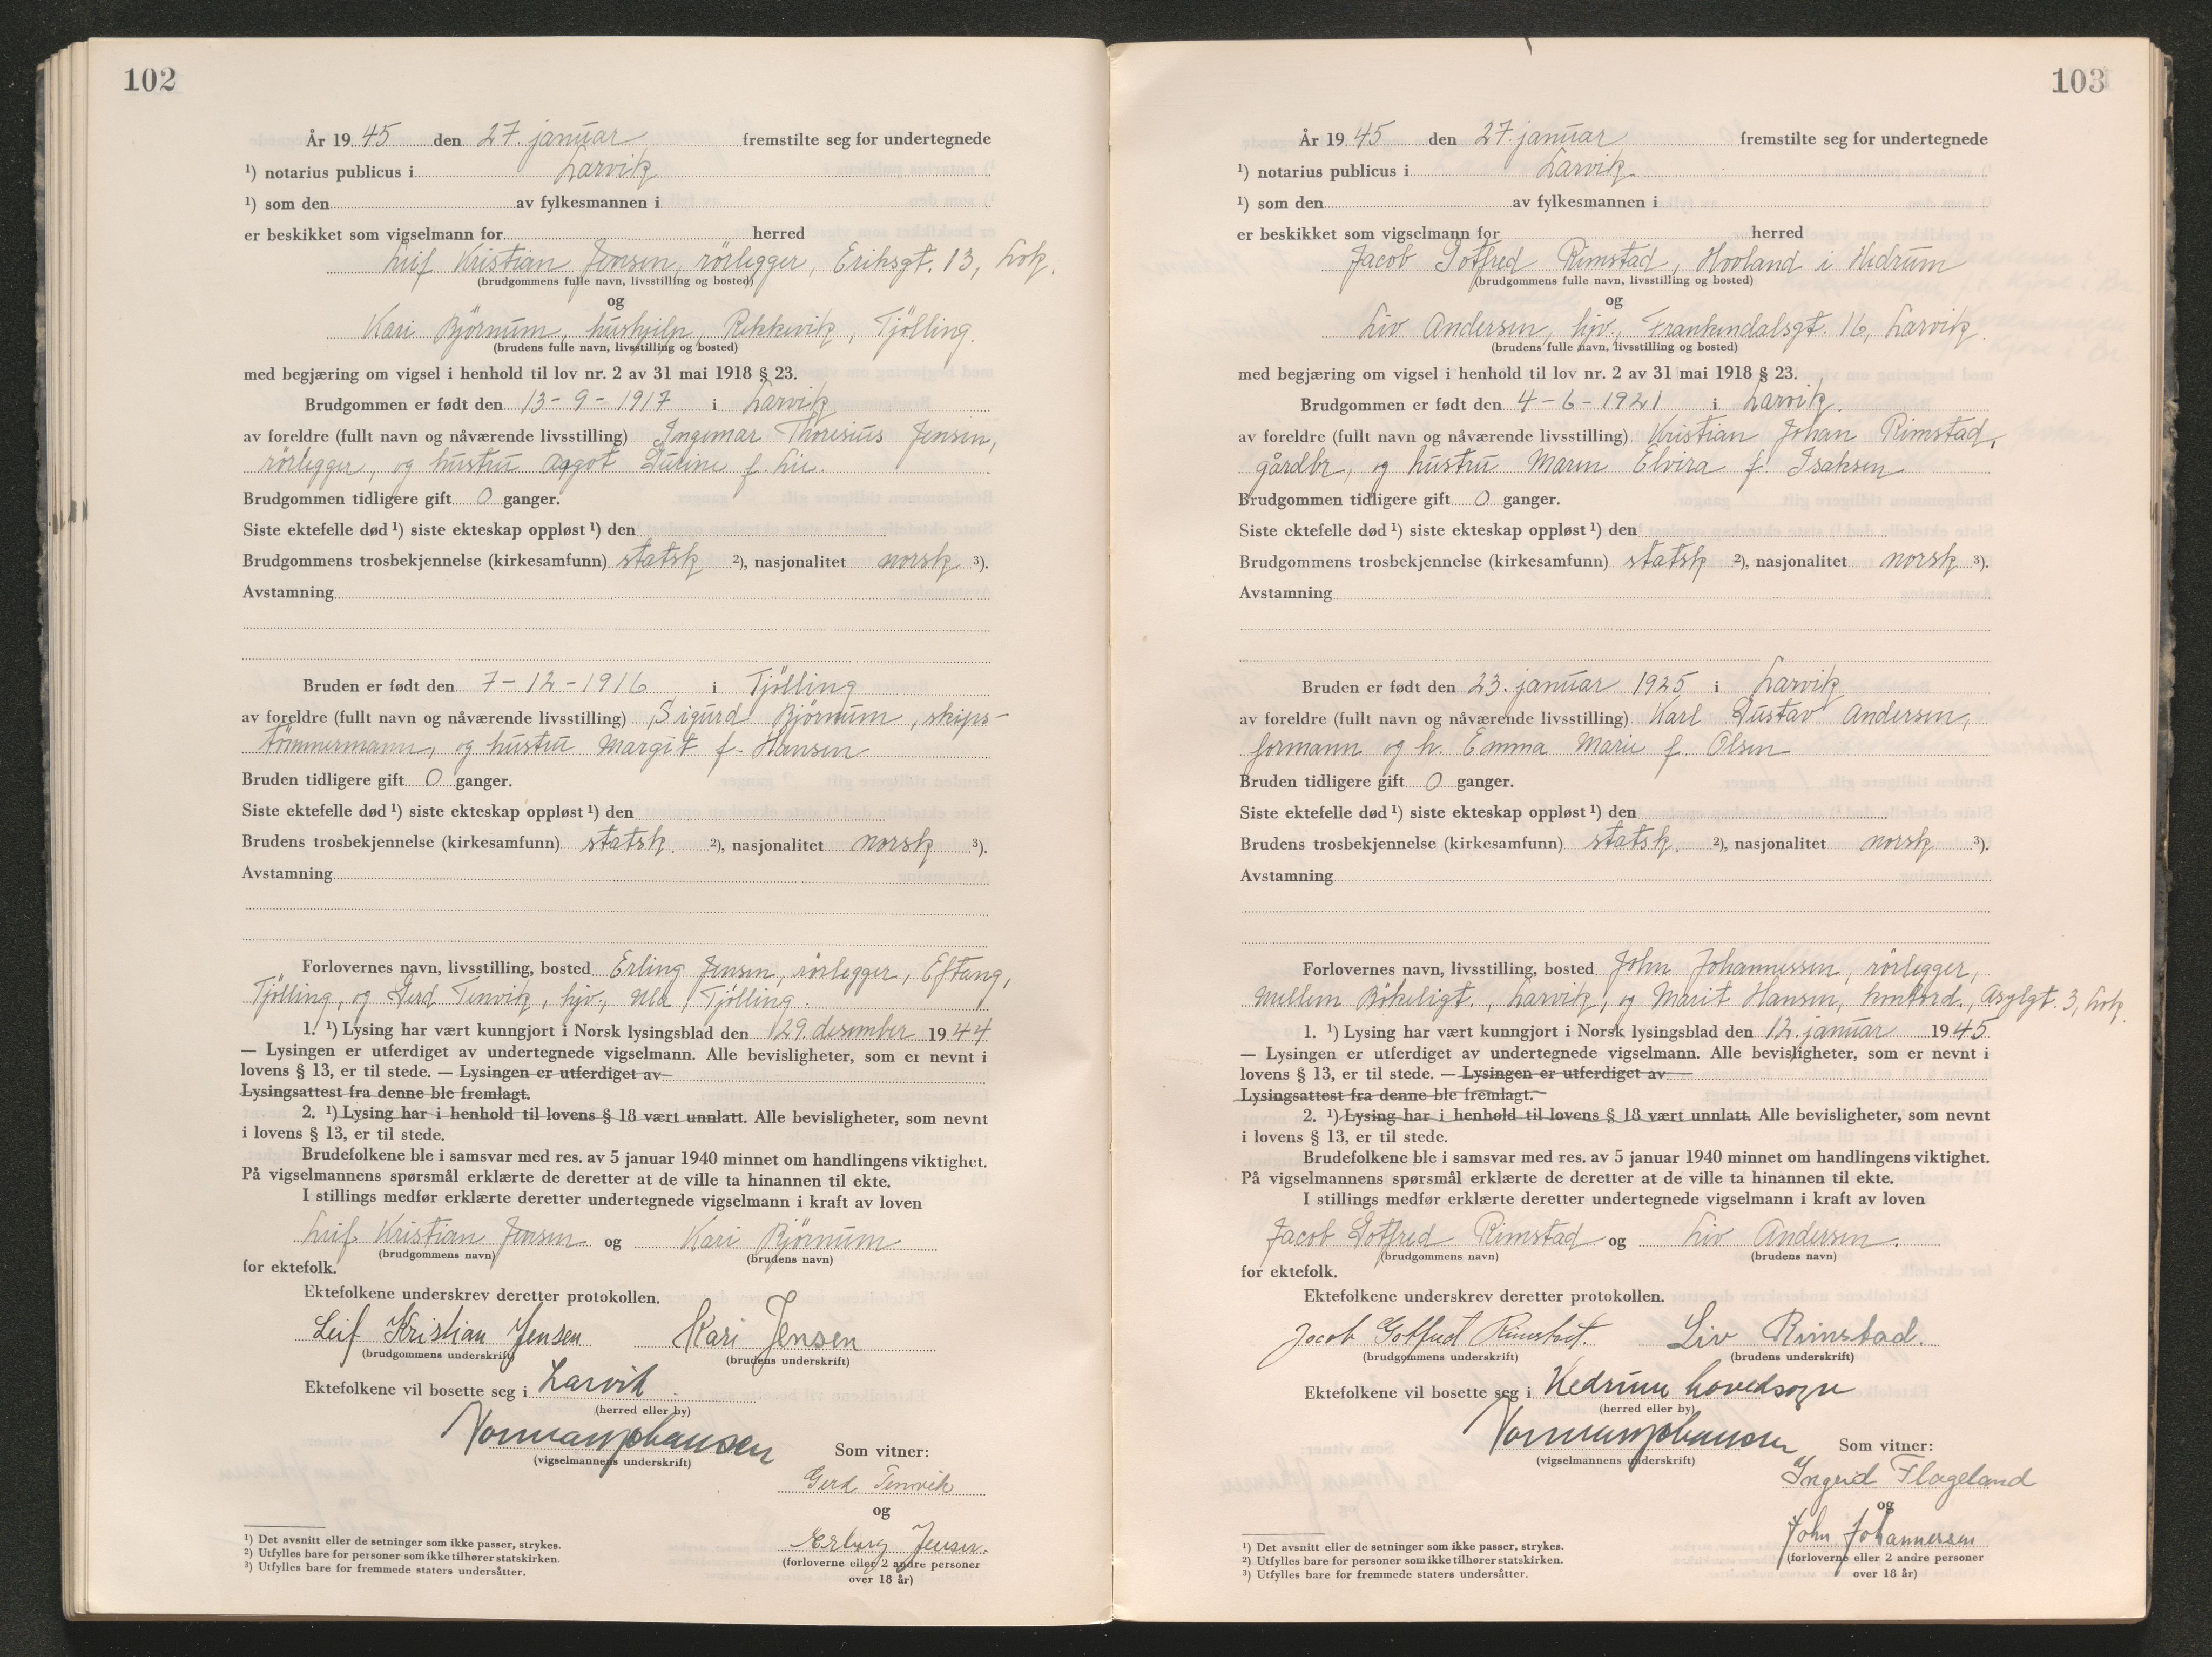 102
År 19 45 den 27. januar fremstilte seg for undertegnede
¹) notarius publicus i Larvik
¹) som den av fylkesmannen i
er beskikket som vigselmann for herred
Leif Kristian Jensen, rörlegger, Eriksgt. 13, Lvk.
(brudgommens fulle navn, livsstilling og bosted)
og
Kari Björnum, hushjelp, Rekkevik, Tjölling.
(brudens fulle navn, livsstilling og bosted)
med begjæring om vigsel i henhold til lov nr. 2 av 31 mai 1918 § 23.
Brudgommen er født den 13-9-1917 i Larvik
av foreldre (fullt navn og nåværende livsstilling) Ingemar Thoresius Jensen,
rörlegger, og hustru Aagot Lie.
Brudgommen tidligere gift 0 ganger.
Siste ektefelle død ¹) siste ekteskap oppløst ¹) den
Brudgommens trosbekjennelse (kirkesamfunn) statsk ²), nasjonalitet norsk ³).
Avstamning
Bruden er født den 7-12-1916 i Tjölling
av foreldre (fullt navn og nåværende livsstilling) Sigurd Björnum, skips-
tömmermann, og hustru Margit f. Hansen
Bruden tidligere gift 0 ganger.
Siste ektefelle død ¹) siste ekteskap oppløst ¹) den
Brudens trosbekjennelse (kirkesamfunn) statsk. ²), nasjonalitet norsk ³).
Avstamning
Forlovernes navn, livsstilling, bosted Erling Jensen, rörlegger, Eftang,
Tjölling, og Gerd Tenvik, hjv., Ula, Tjölling.
1. ¹) Lysing har vært kunngjort i Norsk lysingsblad den 29. desember 19 44
— Lysingen er utferdiget av undertegnede vigselmann. Alle bevisligheter, som er nevnt i
lovens § 13, er til stede. — Lysingen er utferdiget av
Lysingsattest fra denne ble fremlagt.
2. ¹) Lysing har i henhold til lovens § 18 vært unnlatt. Alle bevisligheter, som nevnt
i lovens § 13, er til stede.
Brudefolkene ble i samsvar med res. av 5 januar 1940 minnet om handlingens viktighet.
På vigselmannens spørsmål erklærte de deretter at de ville ta hinannen til ekte.
I stillings medfør erklærte deretter undertegnede vigselmann i kraft av loven
Leif Kristian Jensen og Kari Björnum
(brudgommens navn) (brudens navn)
for ektefolk.
Ektefolkene underskrev deretter protokollen.
Leif Kristian Jensen Kari Jensen
(brudgommens underskrift) (brudens underskrift)
Ektefolkene vil bosette seg i Larvik
(herred eller by)
(vigselmannens underskrift)
Som vitner:
Gerd Tenvik
og
Erling Jensen.
(forloverne eller 2 andre personer
over 18 år)
¹) Det avsnitt eller de setninger som ikke passer, strykes.
²) Utfylles bare for personer som ikke tilhører statskirken.
³) Utfylles bare for fremmede staters undersåtter.
103
År 19 45 den 27. januar fremstilte seg for undertegnede
¹) notarius publicus i Larvik
¹) som den av fylkesmannen i
er beskikket som vigselmann for herred
Jacob Gotfred Rimstad, Hovland i Hedrum
(brudgommens fulle navn, livsstilling og bosted)
og
Liv Andersen, hjv., Frankendalsgt. 16, Larvik.
(brudens fulle navn, livsstilling og bosted)
med begjæring om vigsel i henhold til lov nr. 2 av 31 mai 1918 § 23.
Brudgommen er født den 4-6-1921 i Larvik.
av foreldre (fullt navn og nåværende livsstilling) Kristian Johan Rimstad,
gårdbr, og hustru Maren Elvira f. Isaksen
Brudgommen tidligere gift 0 ganger.
Siste ektefelle død ¹) siste ekteskap oppløst ¹) den
Brudgommens trosbekjennelse (kirkesamfunn) statsk ²), nasjonalitet norsk ³).
Avstamning
Bruden er født den 23. januar 1925 i Larvik
av foreldre (fullt navn og nåværende livsstilling) Karl Gustav Andersen,
formann og h. Emma Marie f. Olsen
Bruden tidligere gift 0 ganger.
Siste ektefelle død ¹) siste ekteskap oppløst ¹) den
Brudens trosbekjennelse (kirkesamfunn) statsk. ²), nasjonalitet norsk ³).
Avstamning
Forlovernes navn, livsstilling, bosted John Johannessen, rörlegger,
Mellem Bökeligt., Larvik, og Marit Hansen, kontord., Asylgt. 3, Lvk.
1. ¹) Lysing har vært kunngjort i Norsk lysingsblad den 12. januar 19 45
— Lysingen er utferdiget av undertegnede vigselmann. Alle bevisligheter, som er nevnt i
lovens § 13, er til stede. — Lysingen er utferdiget av
Lysingsattest fra denne ble fremlagt.
2. ¹) Lysing har i henhold til lovens § 18 vært unnlatt. Alle bevisligheter, som nevnt
i lovens § 13, er til stede.
Brudefolkene ble i samsvar med res. av 5 januar 1940 minnet om handlingens viktighet.
På vigselmannens spørsmål erklærte de deretter at de ville ta hinannen til ekte.
I stillings medfør erklærte deretter undertegnede vigselmann i kraft av loven
Jacob Gotfred Rimstad og Liv Andersen.
(brudgommens navn) (brudens navn)
for ektefolk.
Ektefolkene underskrev deretter protokollen.
Jacob Gotfred Rimstad. Liv Rimstad.
(brudgommens underskrift) (brudens underskrift)
Ektefolkene vil bosette seg i Hedrum hovedsogn
(herred eller by)
(vigselmannens underskrift)
Som vitner:
Ingrid Flageland
og
John Johannessen
(forloverne eller 2 andre personer
over 18 år)
¹) Det avsnitt eller de setninger som ikke passer, strykes.
²) Utfylles bare for personer som ikke tilhører statskirken.
³) Utfylles bare for fremmede staters undersåtter.